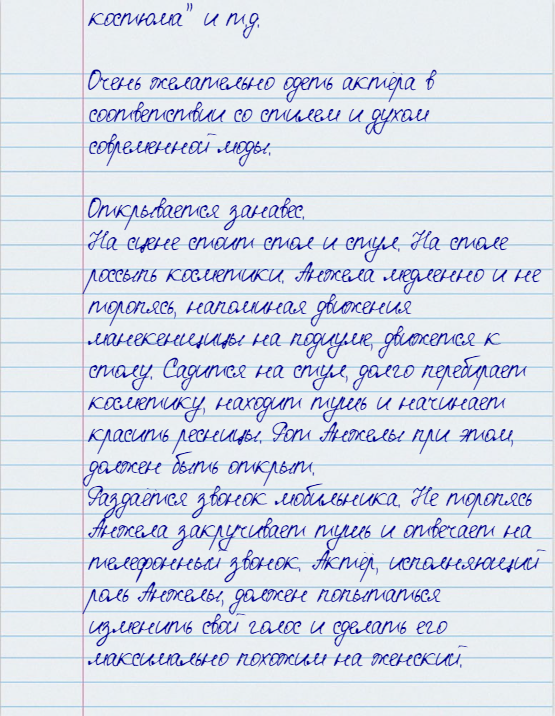 костюма" и т.д.
Очень желательно одеть актёра в
соответствии со стилем и духом
современной моды.
Открывается занавес.
На сцене стоит стол и стул. На столе
россыпь косметики. Анжела медленно и не
торопясь, напоминая движения
манекенщицы на подиуме, движется к
столу. Садится на стул, долго перебирает
косметику, находит тушь и начинает
красить ресницы. Рот Анжелы при этом,
должен быть открыт.
Раздаётся звонок мобильника. Не торопясь
Анжела закручивает тушь и отвечает на
телефонный звонок. Актёр, исполняющий
роль Анжелы, должен попытаться
изменить свой голос и сделать его
максимально похожим на женский.